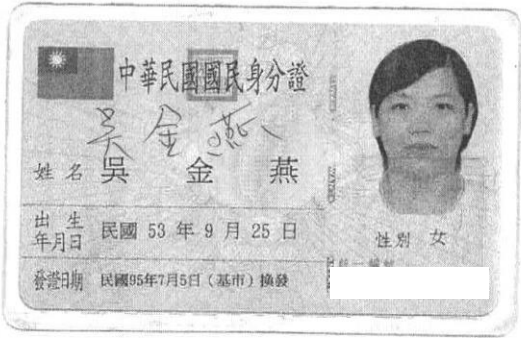 中華民國國民身分證
吳金燕
姓名 吳金燕
出生年月日 民國 53 年 9 月 25 日
性別 女
發證日期 民國95年7月5日（基市）換發